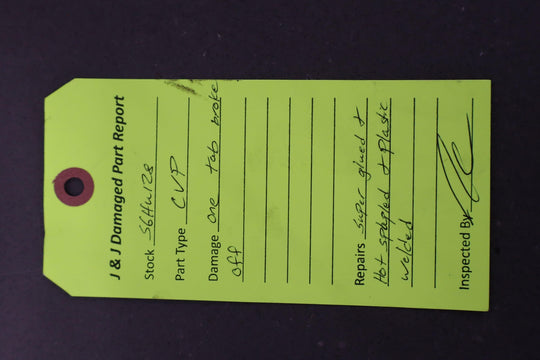 J & J Damaged Part Report
Stock S6HW128
Part Type CVP
Damage one tab broke
off
Repairs super glued &
Hot stapled & Plastic
welded
Inspected By